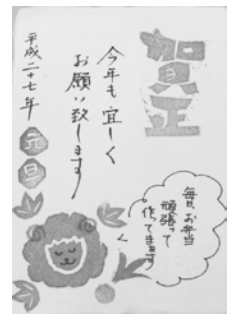 賀正
今年も宜しく
お願い致します
平成二十七年
元旦
毎日、お弁当
頑張って
作ってます